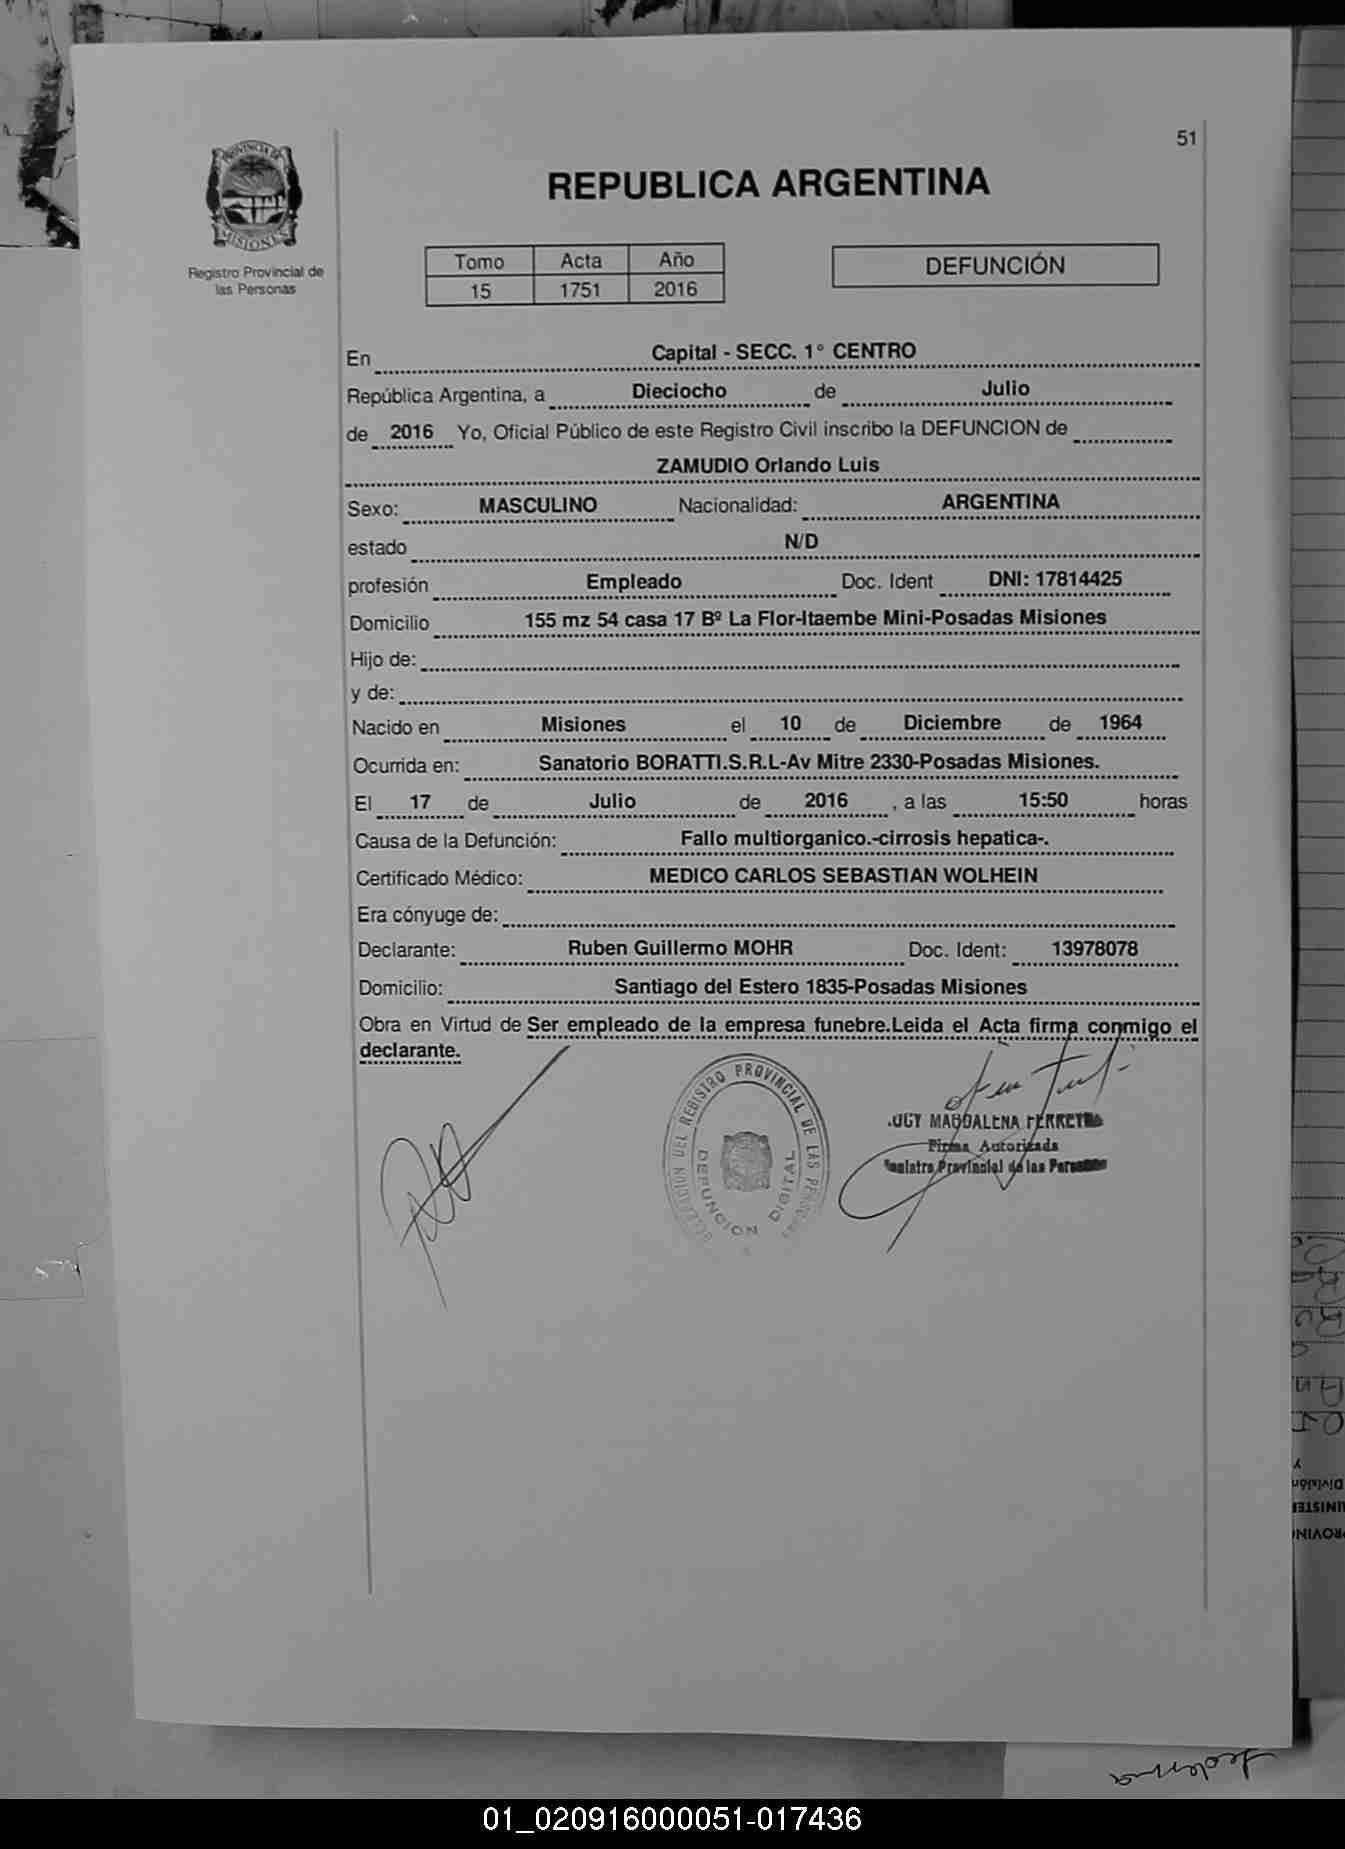 51
PROVINCIA DE
MISIONES
Registro Provincial de
las Personas
REPUBLICA ARGENTINA
Tomo Acta Año
15 1751 2016
DEFUNCIÓN
En Capital - SECC. 1° CENTRO
República Argentina, a Dieciocho de Julio
de 2016 Yo, Oficial Público de este Registro Civil inscribo la DEFUNCION de
ZAMUDIO Orlando Luis
Sexo: MASCULINO Nacionalidad: ARGENTINA
estado N/D
profesión Empleado Doc. Ident DNI: 17814425
Domicilio 155 mz 54 casa 17 Bº La Flor-Itaembe Mini-Posadas Misiones
Hijo de:
y de:
Nacido en Misiones el 10 de Diciembre de 1964
Ocurrida en: Sanatorio BORATTI.S.R.L-Av Mitre 2330-Posadas Misiones.
El 17 de Julio de 2016 , a las 15:50 horas
Causa de la Defunción: Fallo multiorganico.-cirrosis hepatica-.
Certificado Médico: MEDICO CARLOS SEBASTIAN WOLHEIN
Era cónyuge de:
Declarante: Ruben Guillermo MOHR Doc. Ident: 13978078
Domicilio: Santiago del Estero 1835-Posadas Misiones
Obra en Virtud de Ser empleado de la empresa funebre.Leida el Acta firma conmigo el
declarante.
DELEGACION DEL REGISTRO PROVINCIAL DE LAS PERSONAS
DEFUNCION DIGITAL
MAGDALENA FERREYRA
Firma Autorizada
Provincial de las Personas
División
01_020916000051-017436